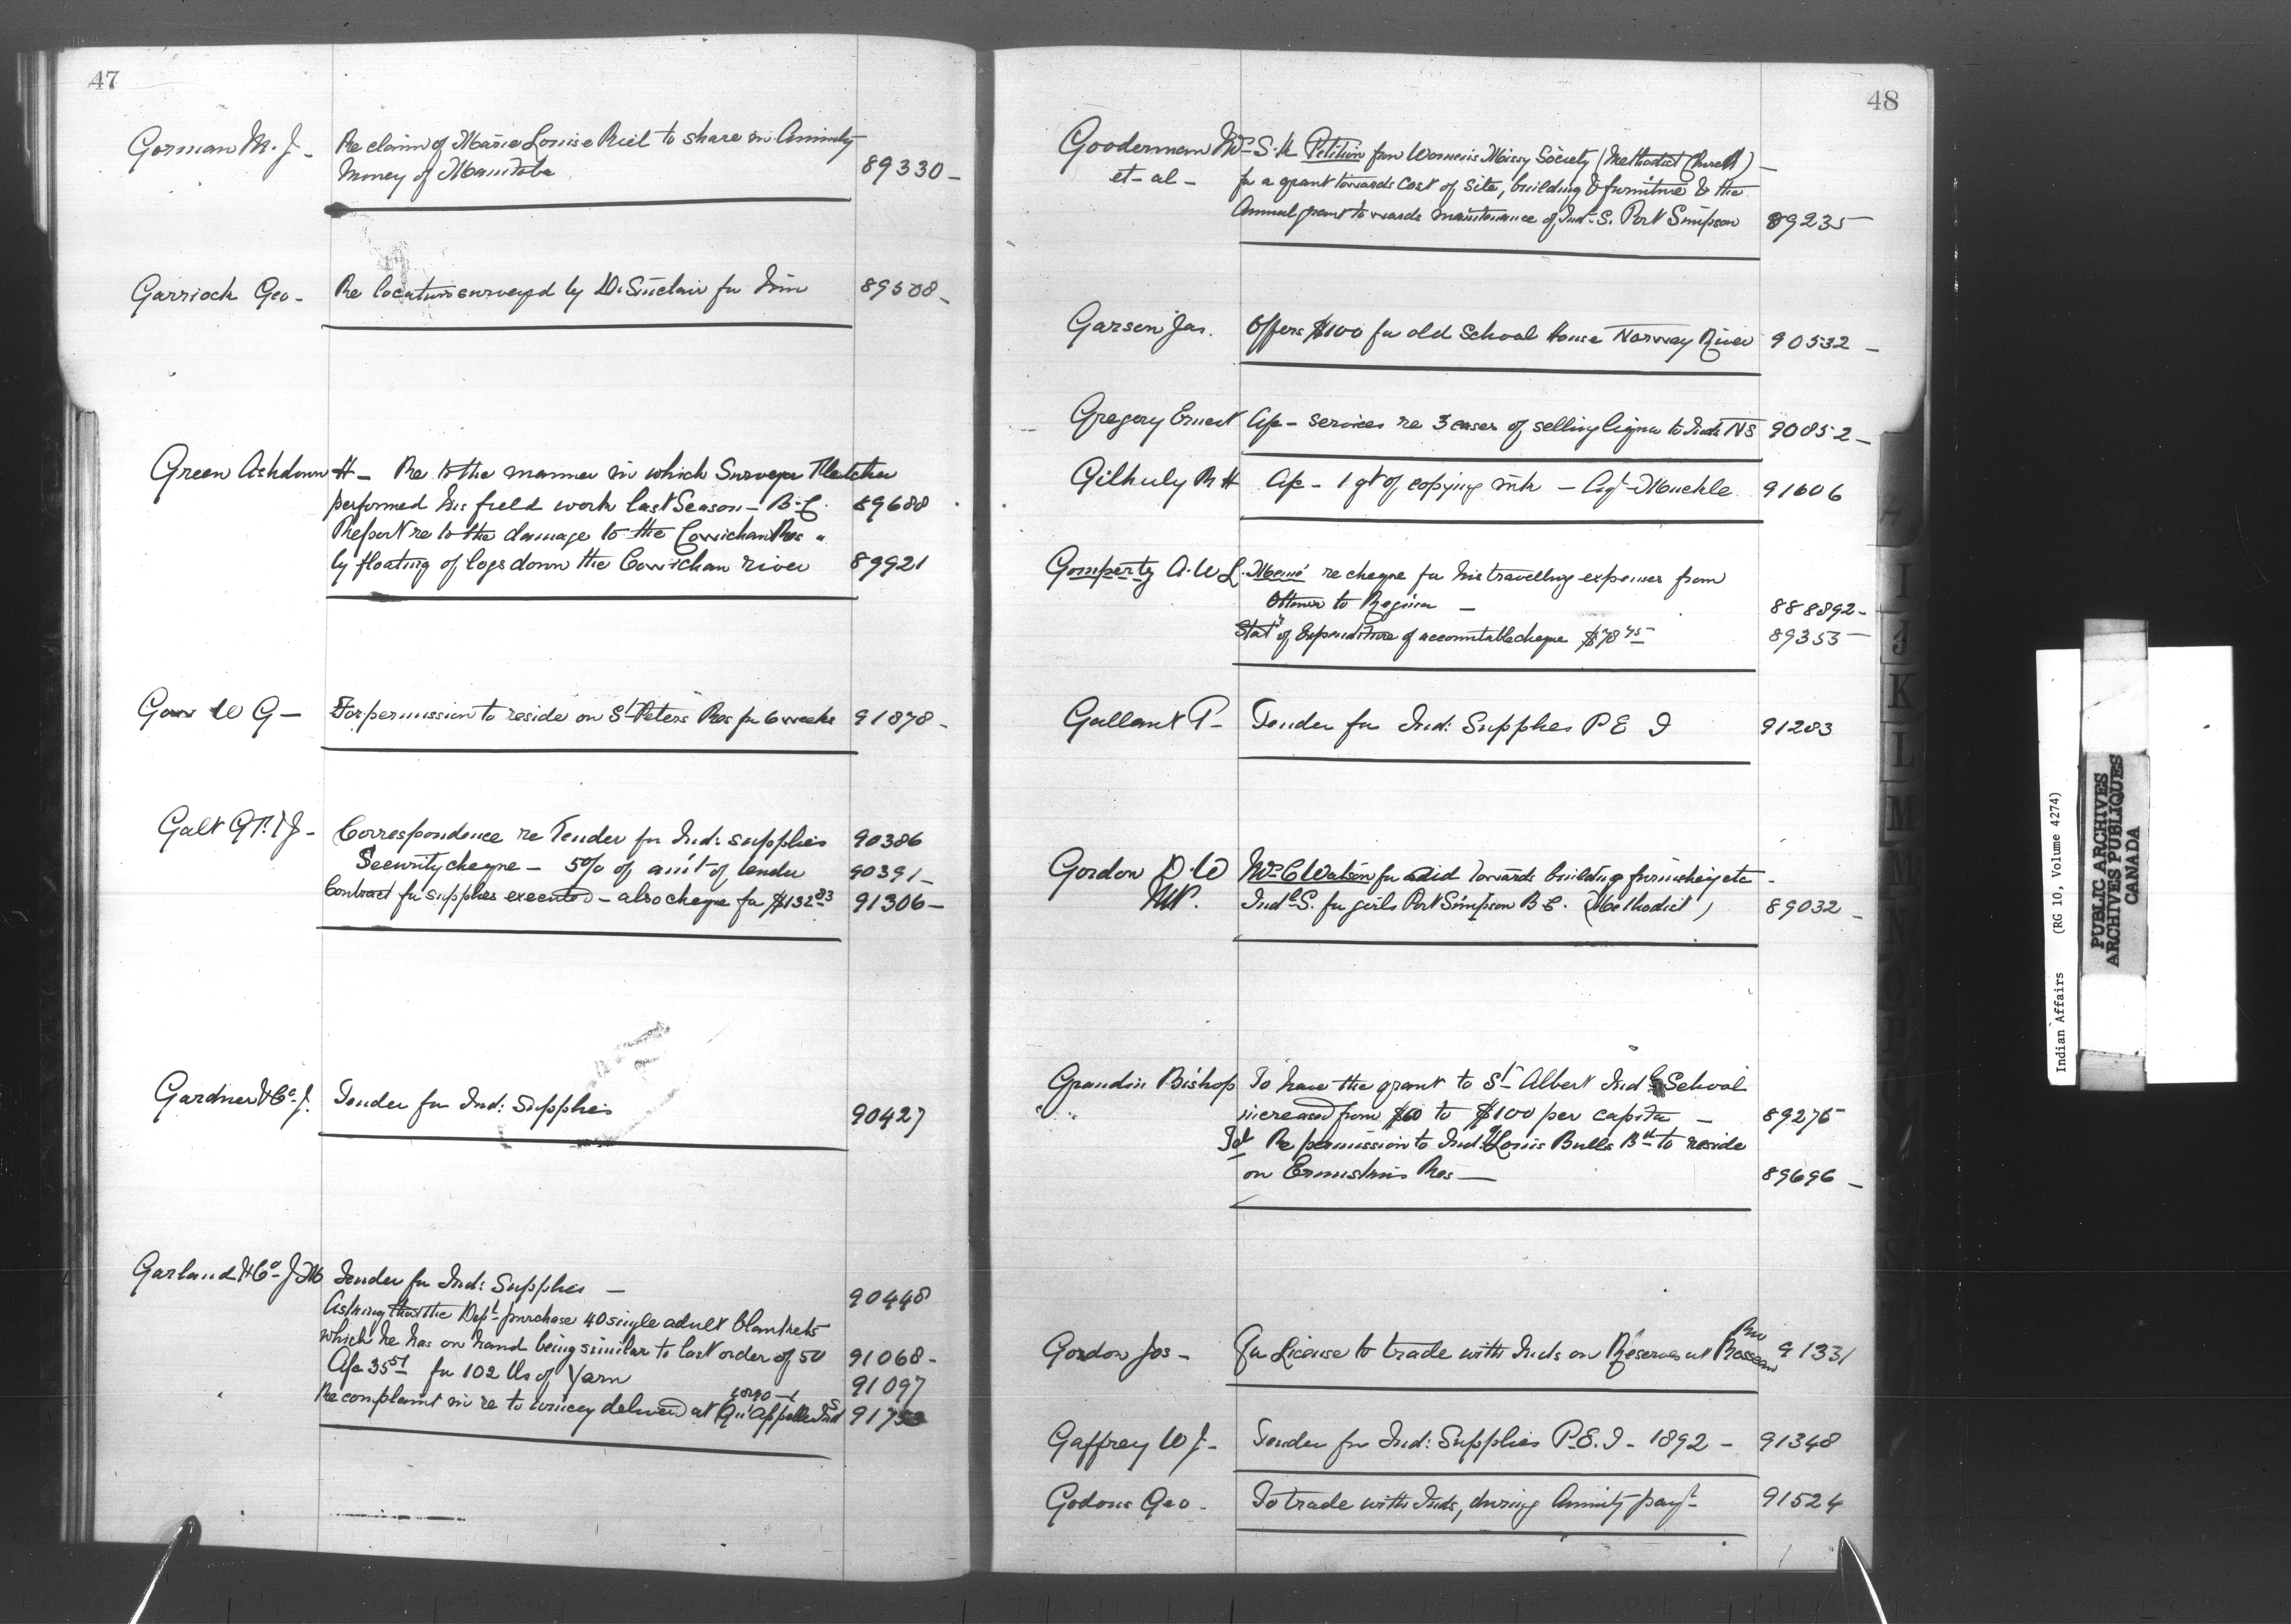 47
Gorman M. J. - Re claim of Marie Louise Riel to share in Annuity
Money of Manitoba 89330 -
Garrioch Geo - Re location surveyed by D. Sinclair for him 89508 -
Green Ashdown H - Re to the manner in which Surveyor Fletcher
performed his field work last Season - B.C. 89688
Report re to the damage to the Cowichan Res
by floating of logs down the Cowichan river 89921
W G - For permission to reside on St Peters Res for 6 weeks 91878 -
Galt G. F. & J - Correspondence re Tender for Ind: supplies 90386
Security cheque - 5% of am't of tender 90391 -
Contract for supplies executed - also cheque for $132.83 91306 -
Gardner & Co. J. Tender for Ind: Supplies 90427
Garland & Co. J M Tender for Ind: Supplies - 90448
Asking that the Dept purchase 40 single adult blankets
which he has on hand being similar to last order of 50 91068 -
A/c 35 51 for 102 lbs of Yarn 91097
Re complaint in re to wincey delivered at Qu'Appelle Ind S
48
Gooderman Mrs S. K Petition from Women's Missy Society (Methodist Church) -
et - al - for a grant towards cost of site, building & furniture & the
Annual grant towards maintenance of Ind. S. Port Simpson 89235
Garson Jas. Offers $100 for old School House Norway River 90532 -
Gregory Ernest A/c - services re 3 cases of selling liquor to Inds NS 90852 -
Gilhuly R H A/c - 1 qt of copying ink - Agt Muckle 91606
Gompertz A. W L. Memo re cheque for his travelling expenses from
Ottawa to Regina - 888892 -
Stat' of Expenditure of accountable cheque $78 75 89353
Gallant P - Tender for Ind: Supplies P E I 91283
Gordon D. W Mrs C Watson for aid towards building furnishing etc -
MP. Indl S. for girls Port Simpson B C. (Methodist) 89032 -
Grandin Bishop To have the grant to St Albert Indl School
increased from $60 to $100 per capita - 89275
Re permission to Inds of Louis Bulls Bd to reside
on Ermine skins Res - 89696 -
Gordon Jos - For License to trade with Inds on Reserves at Rosseau Riv 91331
Gaffrey W J - Tender for Ind: Supplies P.E.I - 1892 - 91348
Godons Geo - To trade with Inds, during Annuity payt - 91524
I
J
K
L
M
Indian Affairs (RG 10, Volume 4274)
PUBLIC ARCHIVES
ARCHIVES PUBLIQUES
CANADA